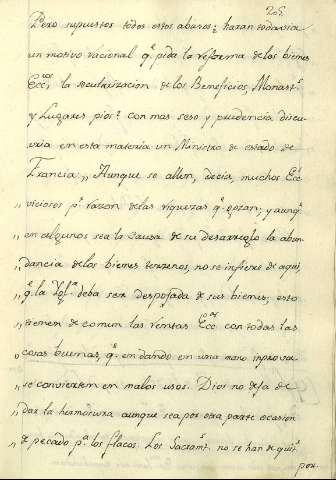 205
Pero supuestos todos estos abusos; haran todavia
un motivo racional q.e pida la reforma de los bienes
Ecc.cos, la secularizacion de los Beneficios, Monast.s
y Lugares pios? Con mas seso y prudencia discu-
rria en esta materia un Ministro de estado de
Francia: „ Aunque se allen, decia, muchos Ecc.
„ viciosos p.r razon de las riquezas q.e gozan; y aunq.e
„ en algunos sea la causa de su desarreglo la abun-
„ dancia de los bienes terrenos, no se infiere de aqui,
„ q.e la Igl.a deba ser despojada de sus bienes; esto
„ tienen de comun las rentas Ecc.cas con todas las
„ cosas buenas, q.e en dando en una mano improva
„ se convierten en malos usos. Dios no deja de
„ dar la hermosura aunque sea por otra parte ocasion
„ de pecado p.a los flacos. Los Sacram.s no se han de quit.r
por